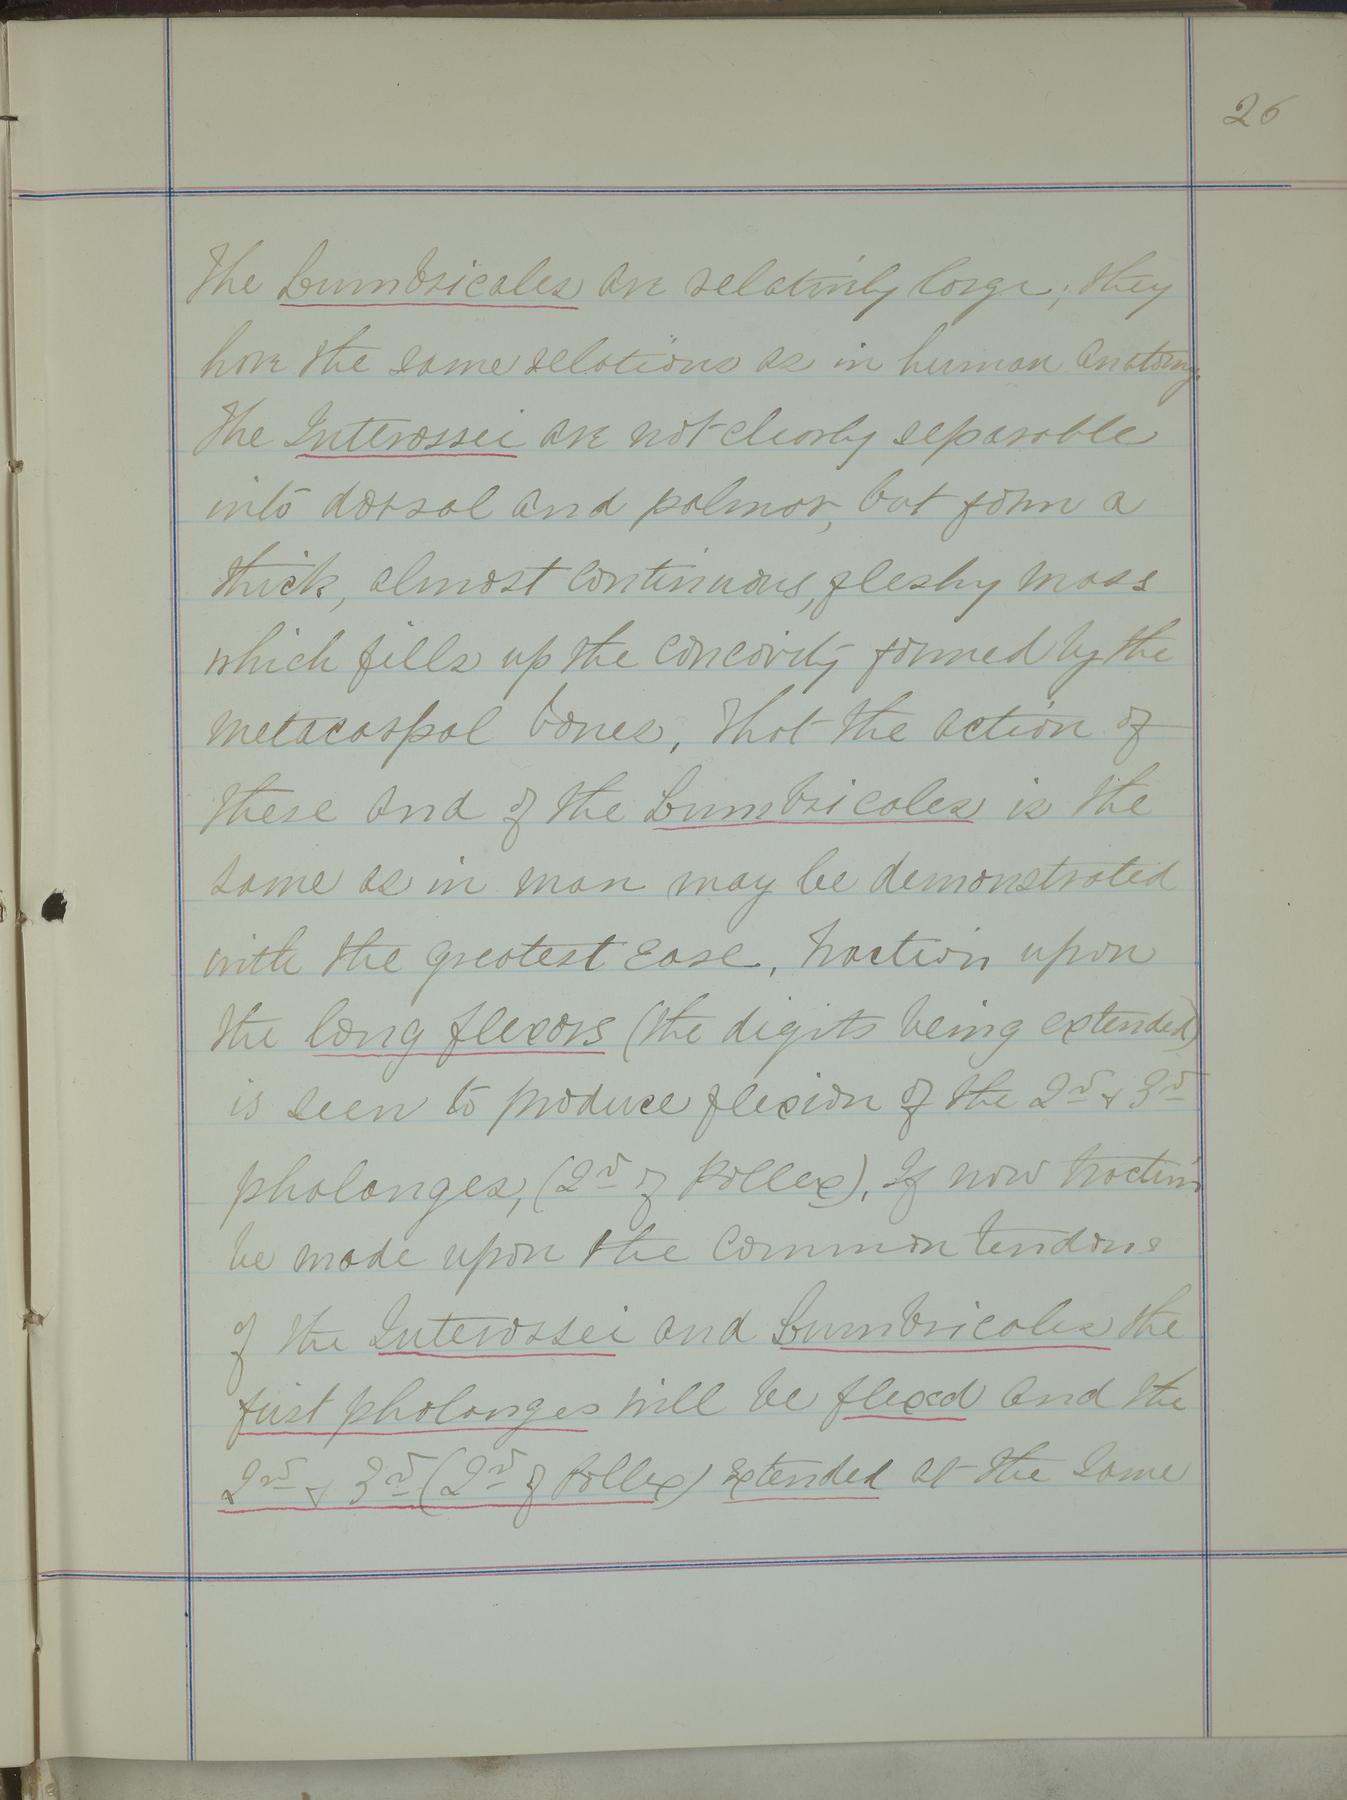 26
The Lumbricales are relatively large; they
have the same relations as in human anatomy.
The Interossei are not clearly separable
into dorsal and palmar, but form a
thick, almost continuous, fleshy mass
which fills up the concavity formed by the
metacarpal bones. That the action of
these and of the Lumbricales is the
same as in man may be demonstrated
with the greatest ease. Traction upon
the long flexors (the digits being extended)
is seen to produce flexion of the 2d & 3d
phalanges, (2d of Pollex). If now traction
be made upon the common tendons
of the Interossei and Lumbricales the
first phalanges will be flexed and the
2nd & 3d (2d of Pollex) extended at the same